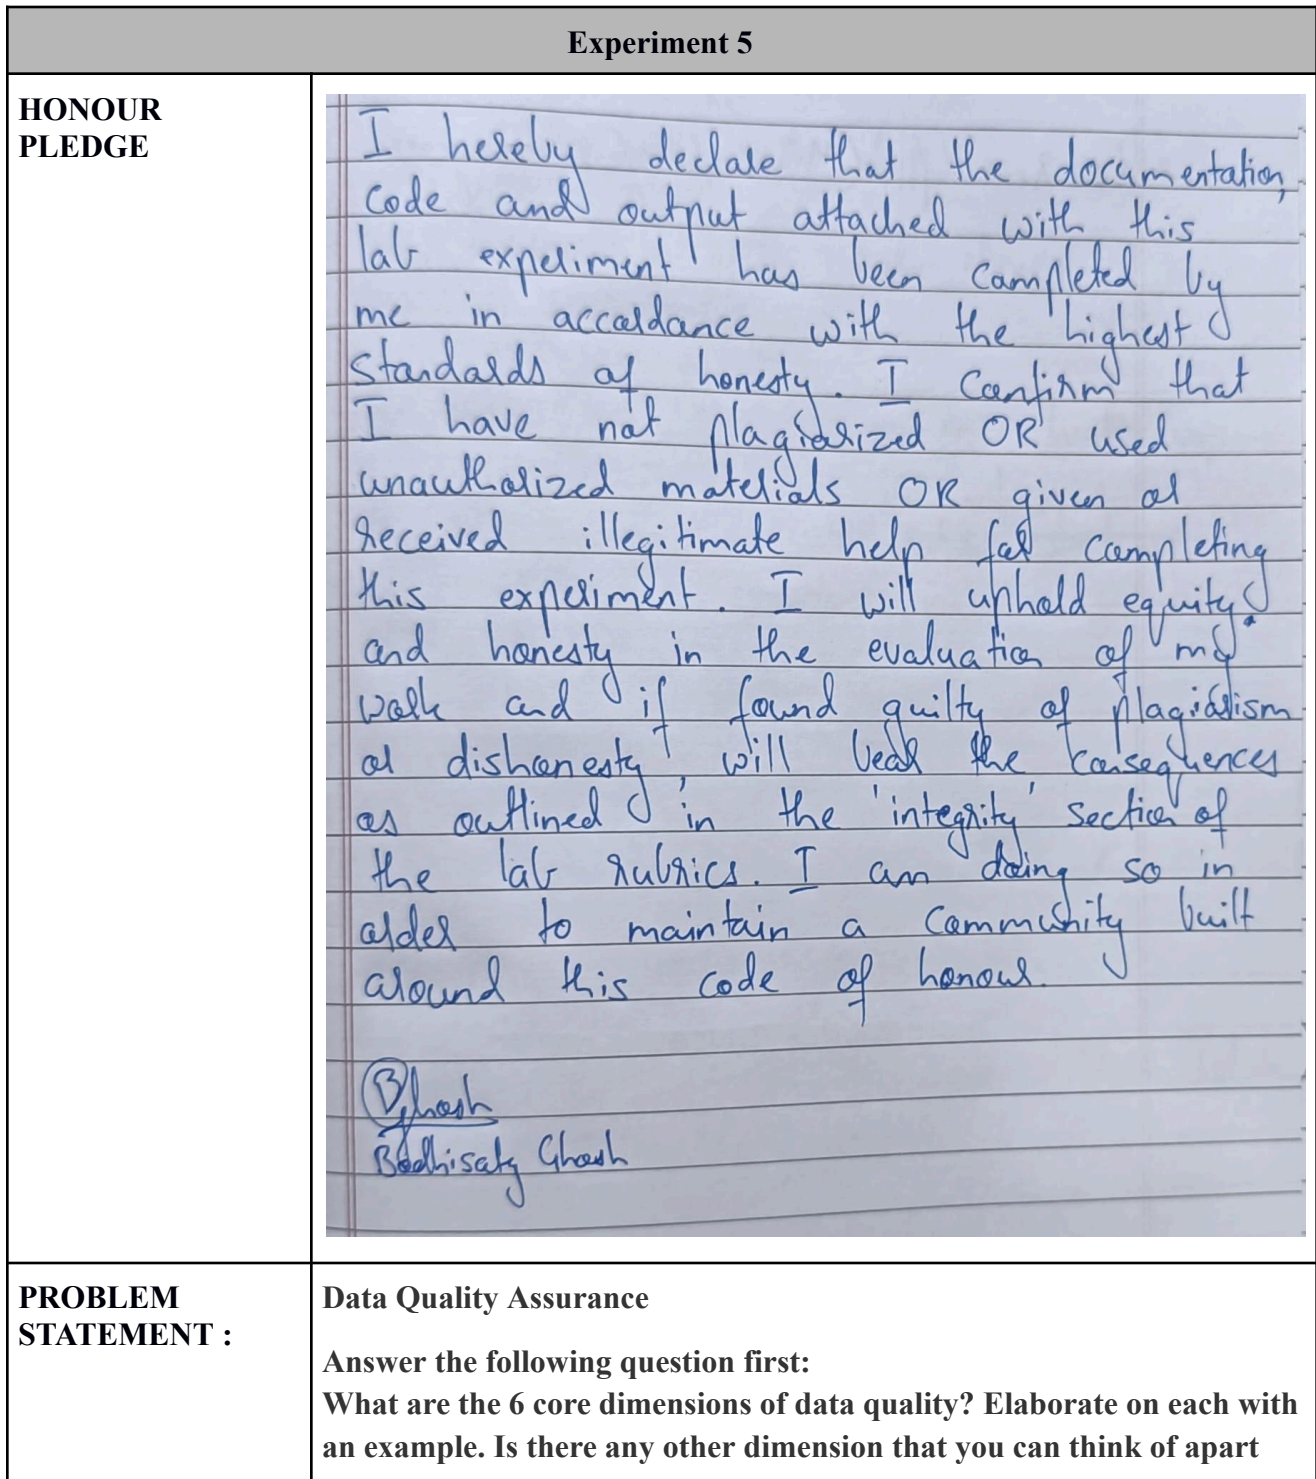 Experiment 5
HONOUR
PLEDGE
I hereby declare that the documentation,
code and output attached with this
lab experiment has been completed by
me in accordance with the highest
standards of honesty. I confirm that
I have not plagiarized OR used
unauthorized materials OR given or
received illegitimate help for completing
this experiment. I will uphold equity
and honesty in the evaluation of my
work and if found guilty of plagiarism
or dishonesty, will bear the consequences
as outlined in the 'integrity' section of
the lab rubrics. I am doing so in
order to maintain a community built
around this code of honour.
BGhosh
Bodhisatya Ghosh
PROBLEM
STATEMENT :
Data Quality Assurance
Answer the following question first:
What are the 6 core dimensions of data quality? Elaborate on each with
an example. Is there any other dimension that you can think of apart